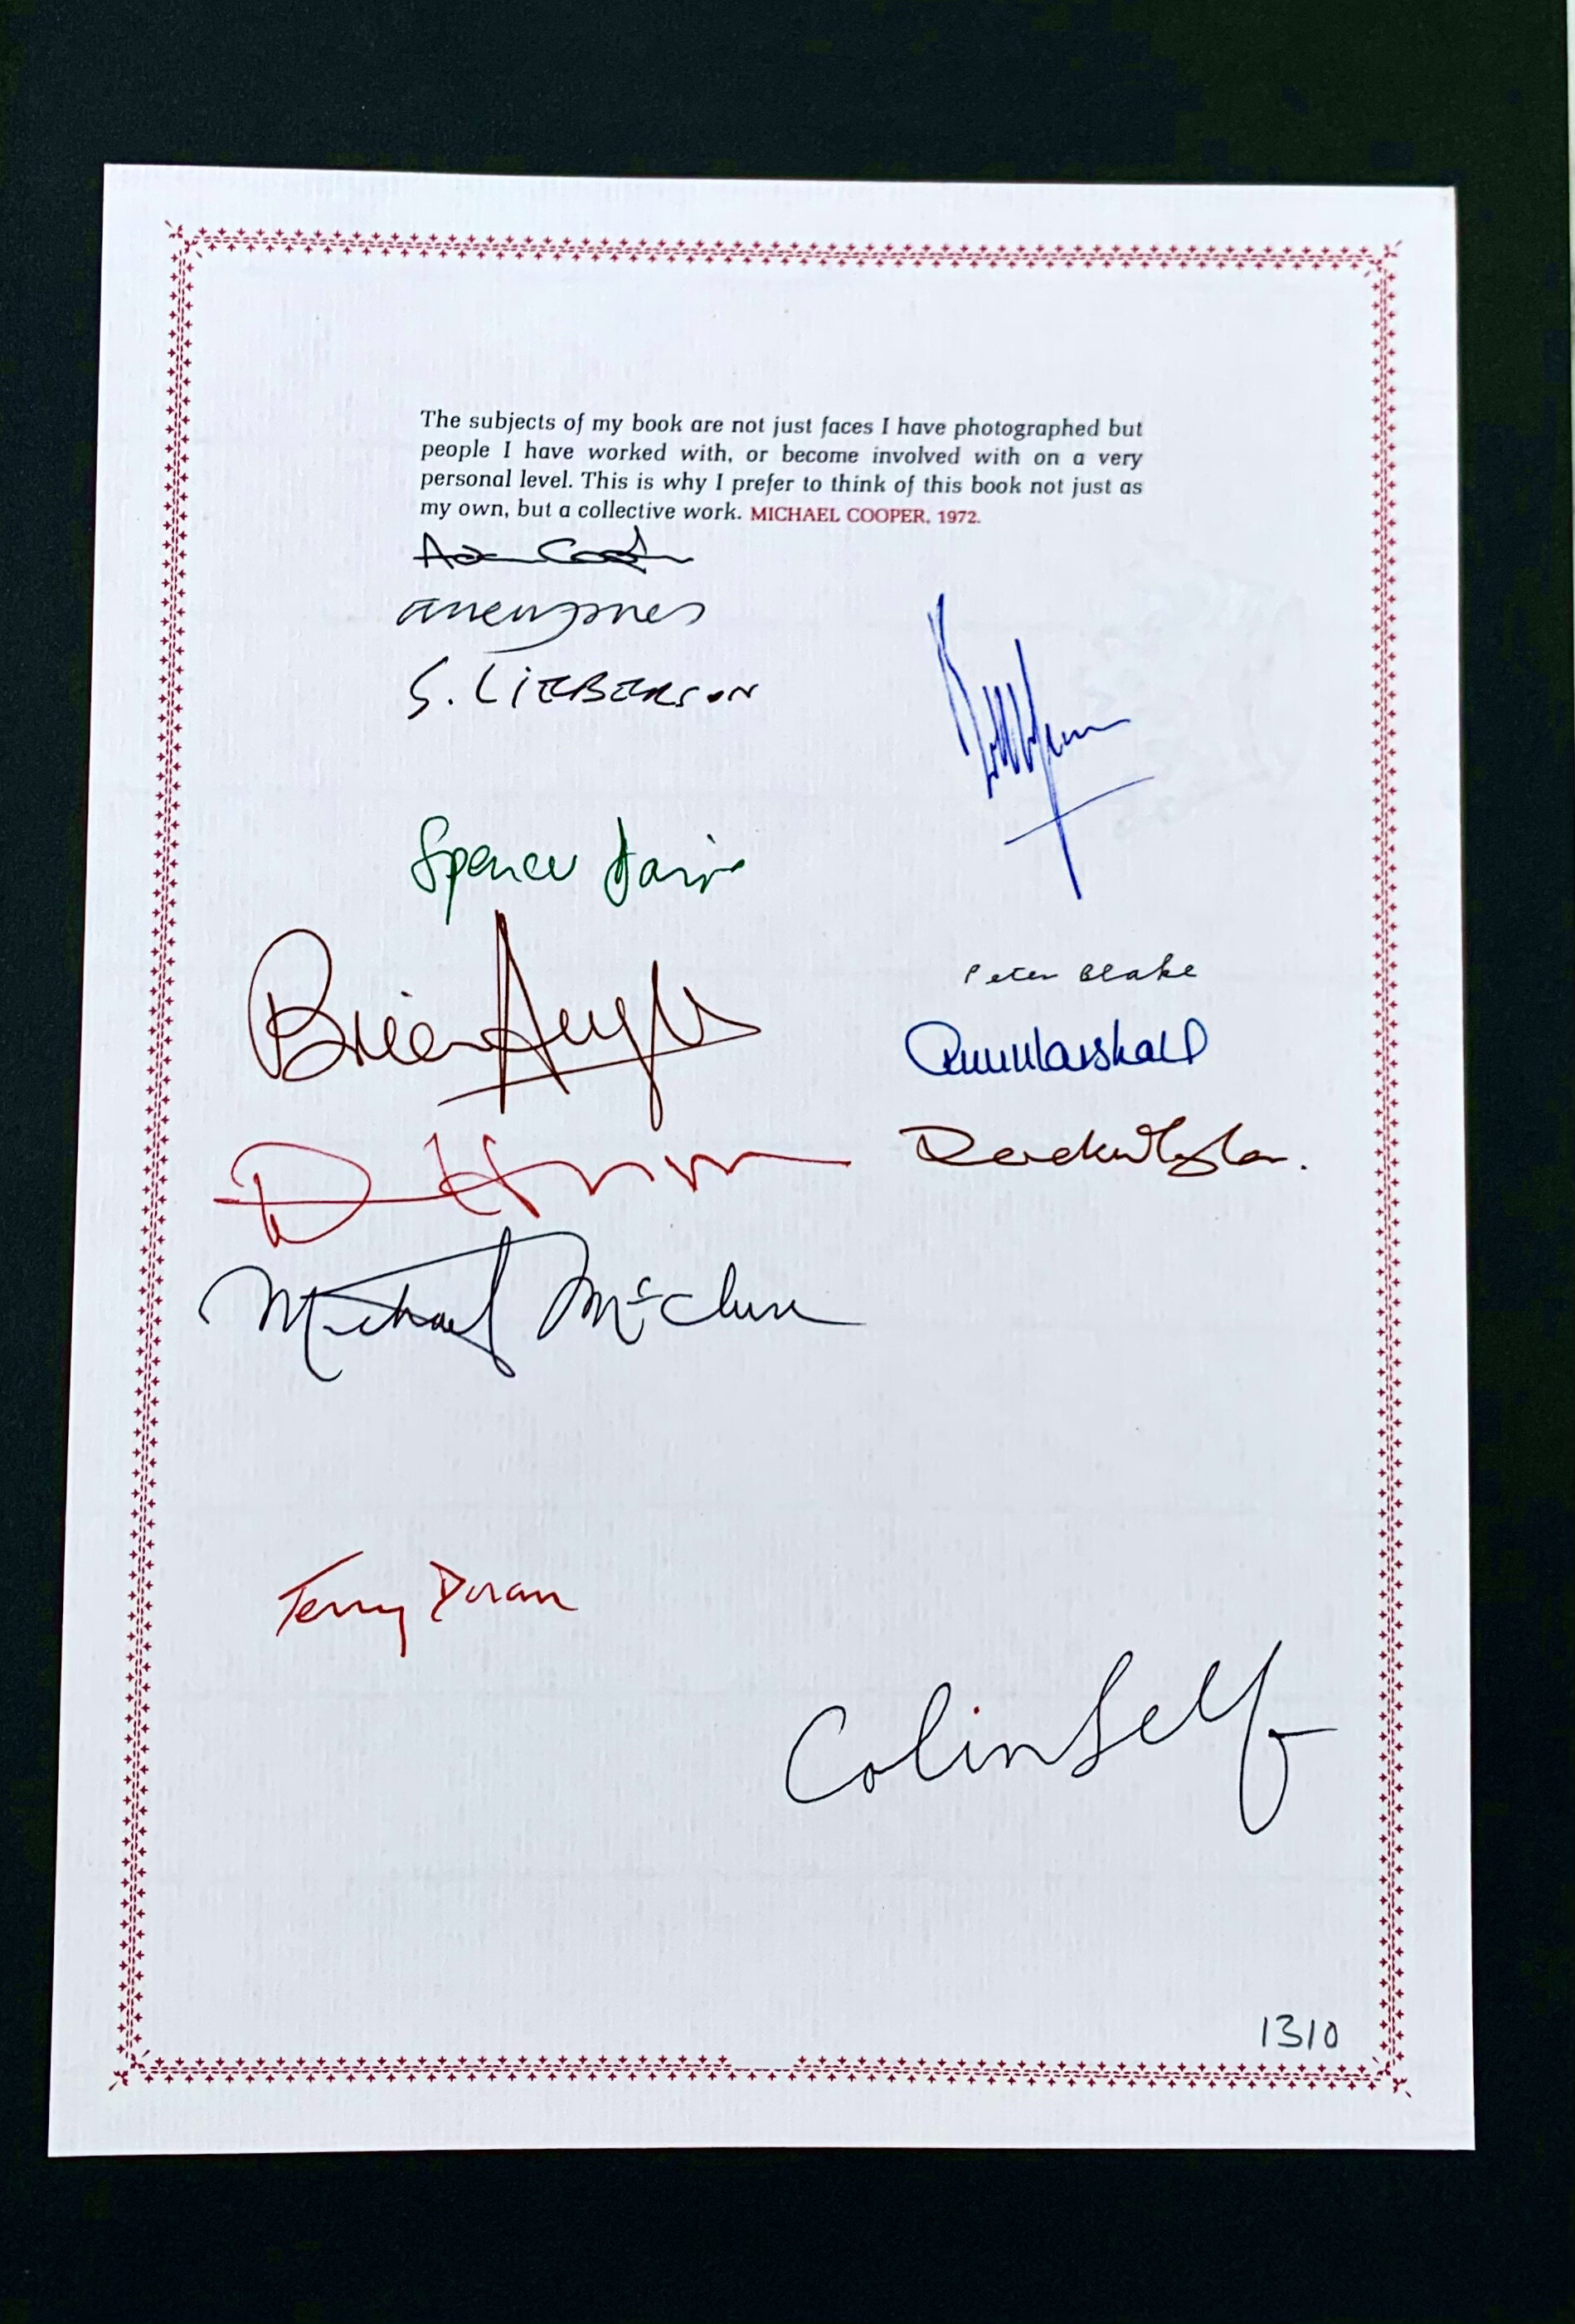 The subjects of my book are not just faces I have photographed but
people I have worked with, or become involved with on a very
personal level. This is why I prefer to think of this book not just as
my own, but a collective work. MICHAEL COOPER, 1972.
S. LIEBERSON
Spencer Davis
Brian Auger
Michael McClure
Terry Doran
Peter Blake
Marshall
Derek Taylor.
Colin Self
1310